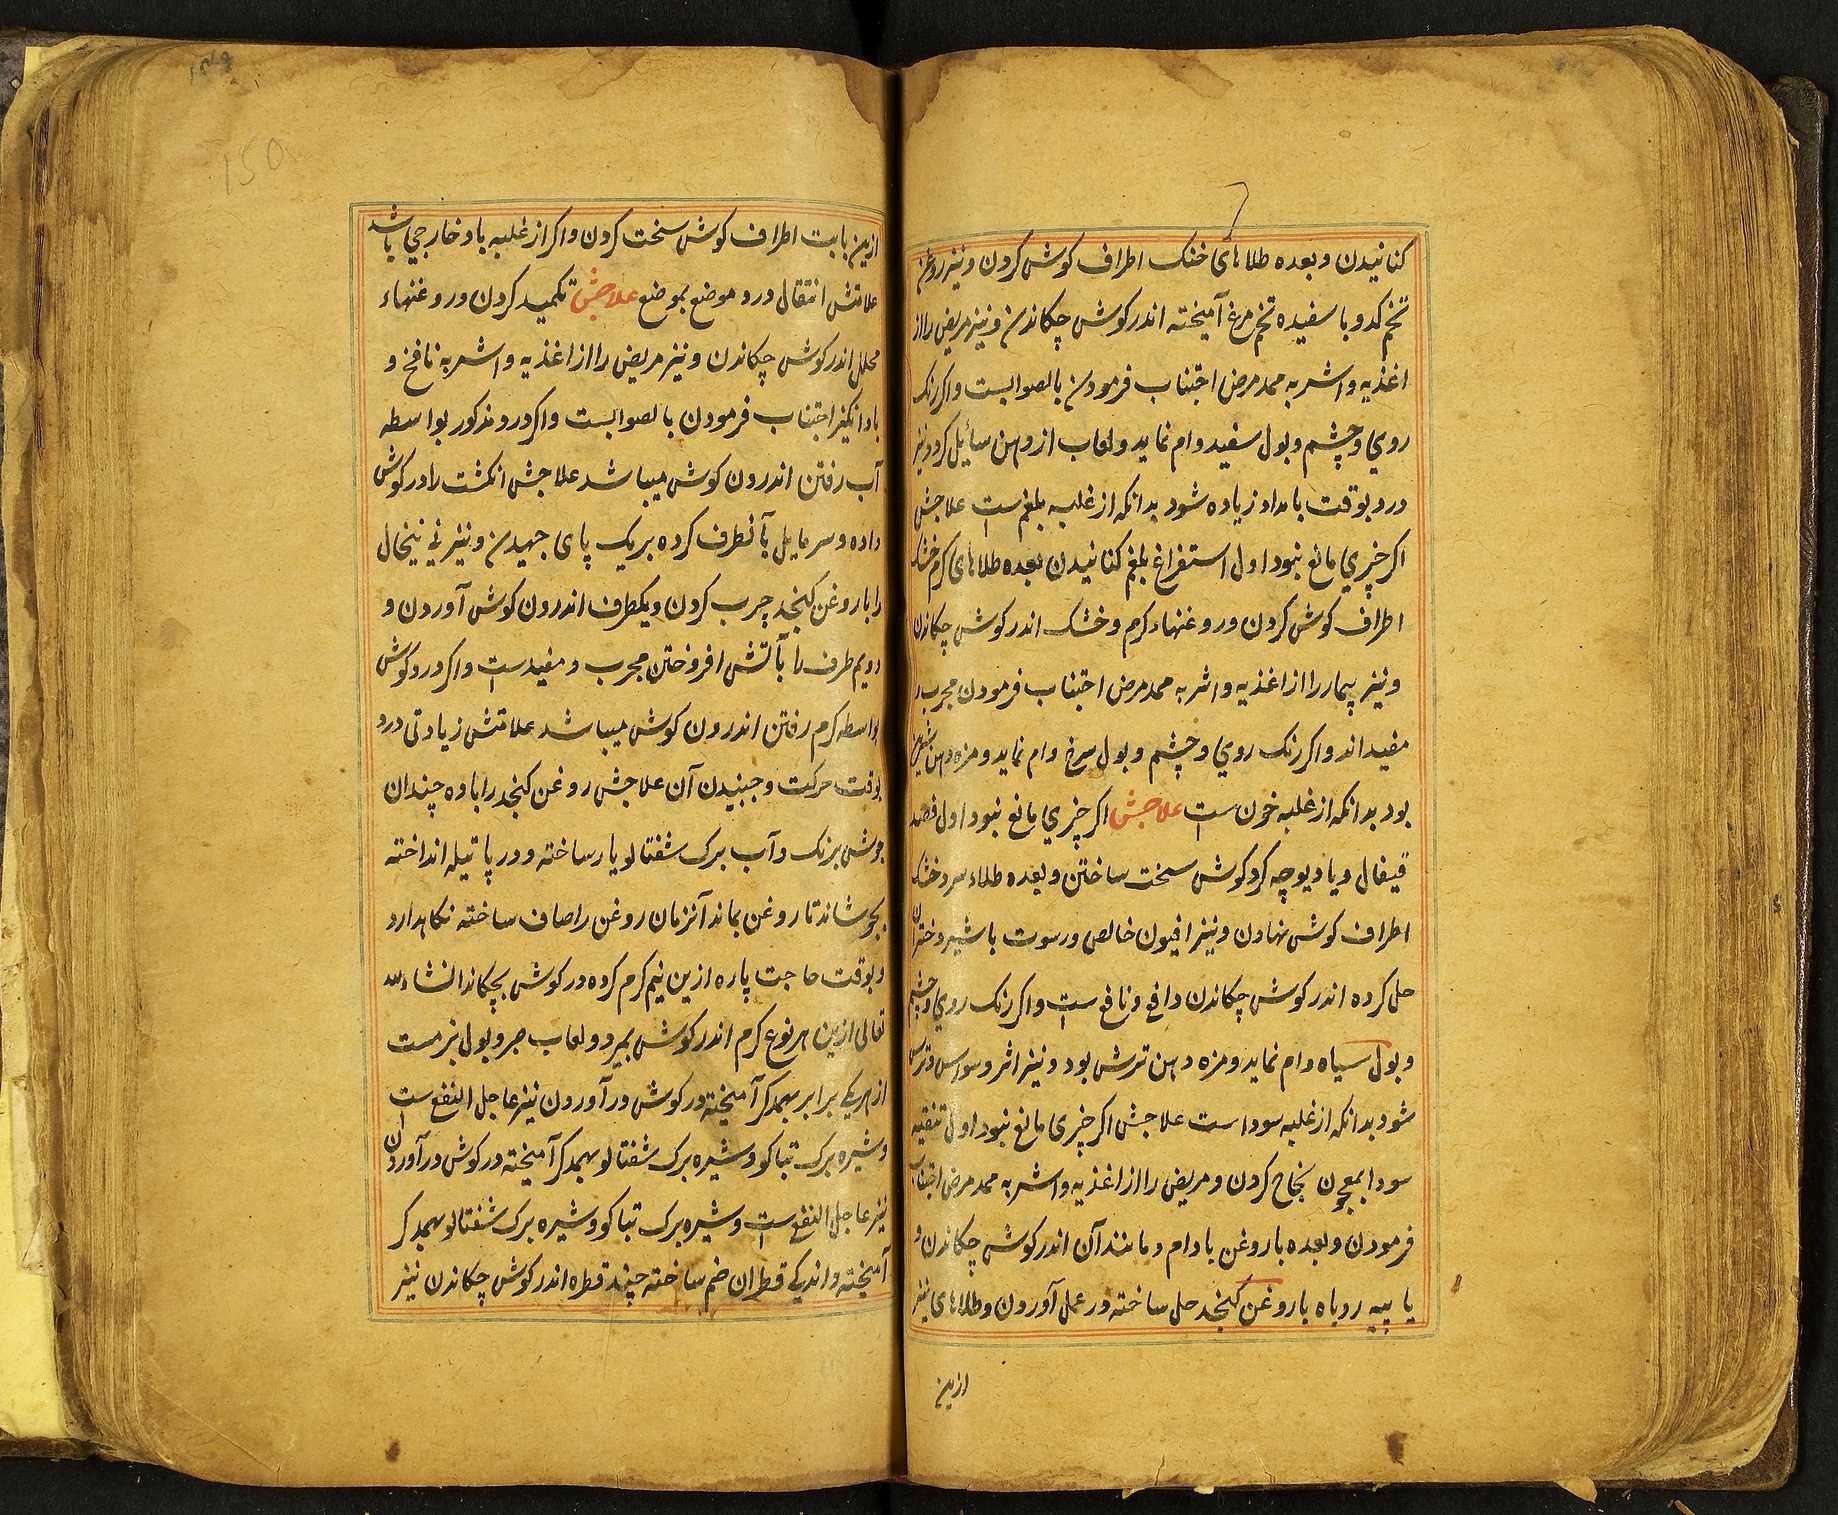 کنانیدن و بعده طلاهای خنک اطراف کوش کردن و نیز روغن
تخم کدو با سفیده تخم مرغ آمیخته اندر کوش چکاندن و نیز مریض را از
اغذیه و اشربه ممد مرض اجتناب فرمودن بالصوابست و اکر رنک
روي و چشم و بول سفید وام نماید و لعاب از دهن سائیل کردد و نیز
درد بوقت بامداد زیاده شود بدانکه از غلبه بلغم ست علاجش
اکر چیزي مانع نبود اول استفراغ بلغم کنانیدن بعده طلاهای کرم خشک
اطراف کوش کردن و روغنهاء کرم و خشک اندر کوش چکاندن
و نیز بیمار را از اغذیه و اشربه ممد مرض اجتناب فرمودن مجرب و
مفید اند و اکر رنک روي و چشم و بول سرخ وام نماید و مزه دهن شیرین
بود بدانکه از غلبه خون ست علاجش اکر چیزي مانع نبود اول فصد
قیفال و یا دیوچه کرد کوش سخت ساختن و بعده طلاء سرد خشک
اطراف کوش نهادن و نیز افیون خالص و رسوت با شیر دختران
حل کرده اندر کوش چکاندن دافع و نافع ست و اکر رنک روي و چشم
و بول سیاه وام نماید و مزه دهن ترش بود و نیز اثر وسواس و ترس
شود بدانکه از غلبه سودا ست علاجش اکر چیزی مانع نبود اول تنقیه
سودا بمعجون نجاح کردن و مریض را از اغذیه و اشربه ممد مرض اجتناب
فرمودن و بعده با روغن بادام و مانند آن اندر کوش چکاندن و
یا پیه روباه با روغن کنجد حل ساخته در عمل آوردن و طلاهای نیز
ازین
150
ازین بابت اطراف کوش سخت کردن و اکر از غلبه باد خارجي باشد
علامتش انتقال درد موضع بموضع علاجش تکمید کردن و روغنهاء
محلل اندر کوش چکاندن و نیز مریض را از اغذیه و اشربه نافخ و
باد انکیز اجتناب فرمودن بالصوابست و اکر درد مذکور بواسطه
آب رفتن اندرون کوش میباشد علاجش انکشت را در کوش
داده و سر مایل بآنطرف کرده بر یک پای جهیدن و نیز ني نیخال
را با روغن کنجد چرب کردن و یکطرف اندرون کوش آوردن و
دویم طرف را بآتش افروختن مجرب و مفیدست و اکر درد کوش
بواسطه کرم رفتن اندرون کوش میباشد علامتش زیادتی درد
بوقت حرکت و جنبیدن آن علاجش روغن کنجد را با ده چندان
جوش برنک و آب برک شفتالو یار ساخته و در پاتیله انداخته
بجوشاند تا روغن بماند آنزمان روغن را صاف ساخته نکاهدارد
و بوقت حاجت پاره ازین نیم کرم کرده در کوش بچکاند انشاءالله
تعالی ازین هر نوع کرم اندر کوش بمیرد و لعاب صبر و بول بز مست
از هر یکے برابر بهمدکر آمیخته در کوش در آوردن نیز عاجل النفع ست
و شیره برک تنباکو و شیره برک شفتالو بهمدکر آمیخته در کوش در آوردن
نیز عاجل النفع ست و شیره برک تنباکو و شیره برک شفتالو بهمدکر
آمیخته و اندکے قطران ضم ساخته چند قطره اندر کوش چکاندن نیز